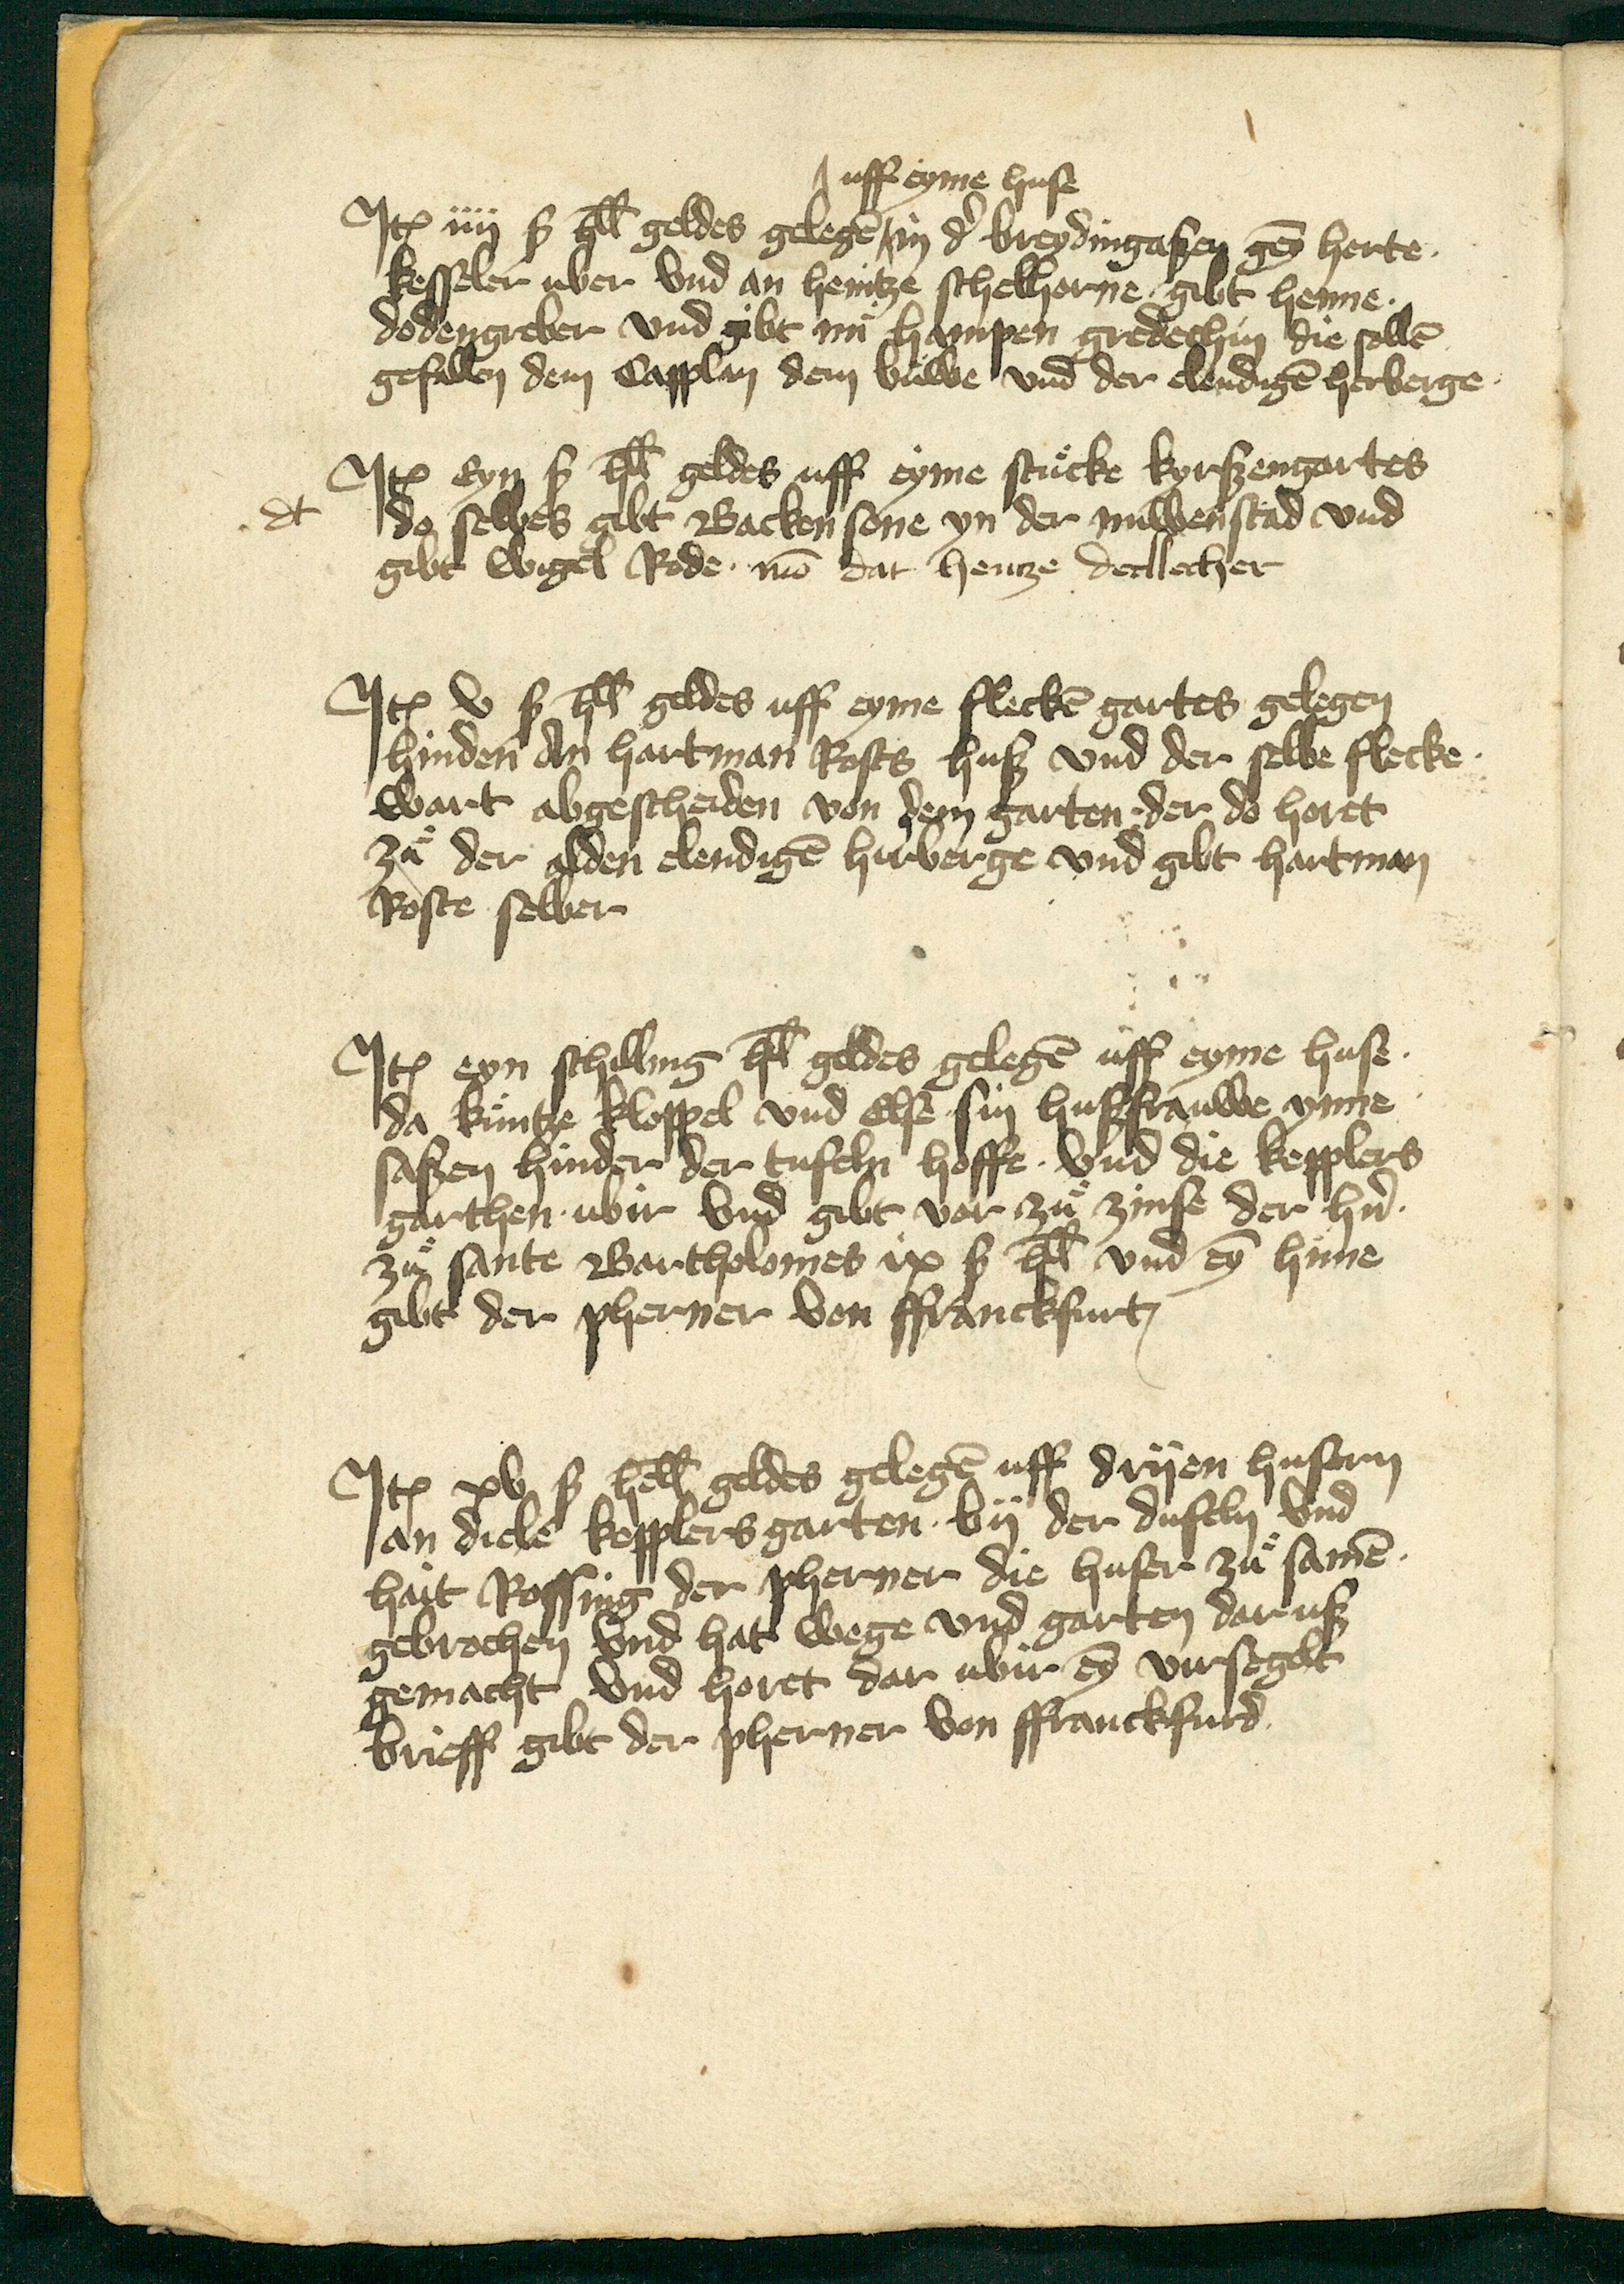 uff eyme huse
Itꝫ iiij ß hlł geldes gelegē in d' breydingaßen gey̅ herte
kesseler uber vnd an heintze schelhorne gibt henne
dodengreber vnd gibt nu hampen gredechin die sollē
gefallen dem Capplan dem buwe vnd der elendigē herberge
Itꝫ Eyn ß hlł geldes uff eyme stucke kyrßengartes
dt do selbes gibt Backen sone yn der nuwenstad vnd
gibt wigel Rode mo̅ dat hentze decklecher
Itꝫ v ß hlł geldes uff eyme fleckē gartes gelegen
hinden an hartman Rosts huß vnd der selbe flecke
wart abgescheiden von dem garten der do horet
zuͦ der alden elendigē hirberge vnd gibt hartman
Roste selber
Itꝫ eyn schilling hlł geldes gelegē uff eyme huse
da kuntze kloppel vnd Else sin hußfrauwe ynne
saßen hinder der tufeln hoffe vnd die kepplers
garthen ubir vnd gibt vor zuͦ zinse der hn̄
zuͦ sante Bartholomes ix ß hlł vnd ey̅ hune
gibt der pherner von ffranckfurt
Itꝫ xv ß hellł geldes gelegē uff dryen husern
an diele kepplers garten by der dufeln vnd
hait Rossing der pherner die huser zuͦ samē
gebrochen vnd hat wege vnd garten dar uß
gemacht vnd horet dar ubir ey̅ virsegelt
brieff gibt der pherner von ffranckfurd